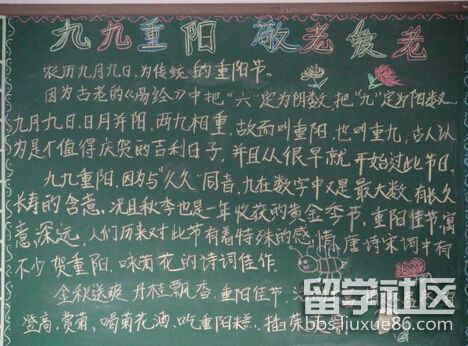 九九重阳 敬老爱老
农历九月九日,为传统的重阳节。
因为古老的《易经》中把“六”定为阴数,把“九”定为阳数,
九月九日,日月并阳,两九相重,故而叫重阳,也叫重九,古人认
为是个值得庆贺的吉利日子,并且从很早就开始过此节日。
九九重阳,因为与“久久”同音,九在数字中又是最大数,有长久
长寿的含意,况且秋季也是一年收获的黄金季节,重阳佳节,寓
意深远,人们历来对此节有着特殊的感情,唐诗宋词中有
不少贺重阳,咏菊花的诗词佳作。
金秋送爽,丹桂飘香,重阳佳节,
登高,赏菊,喝菊花酒,吃重阳糕,插茱
留学社区
bbs.liuxue86.com